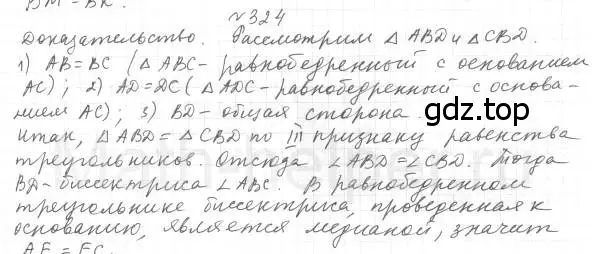 BM = BK.
№324
Доказательство. Рассмотрим △ABD и △CBD.
1) AB=BC (△ABC - равнобедренный с основанием
AC); 2) AD=DC (△ADC - равнобедренный с основа-
нием AC); 3) BD - общая сторона
gdz.top
Итак, △ABD = △CBD по III признаку равенства
треугольников. Отсюда ∠ABD = ∠CBD. Тогда
BD - биссектриса ∠ABC. В равнобедренном
треугольнике биссектриса, проведенная к
основанию, является медианой, значит
AE = EC.